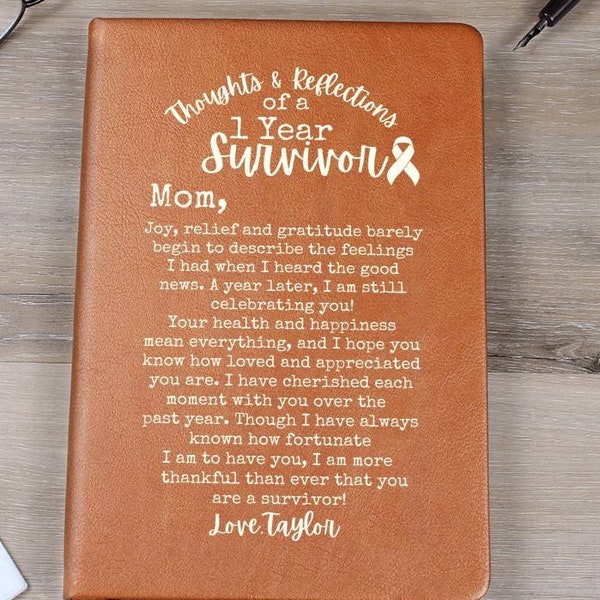 Thoughts & Reflections
of a
1 Year
Survivor
Mom,
Joy, relief and gratitude barely
begin to describe the feelings
I had when I heard the good
news. A year later, I am still
celebrating you!
Your health and happiness
mean everything, and I hope you
know how loved and appreciated
you are. I have cherished each
moment with you over the
past year. Though I have always
known how fortunate
I am to have you, I am more
thankful than ever that you
are a survivor!
Love, Taylor